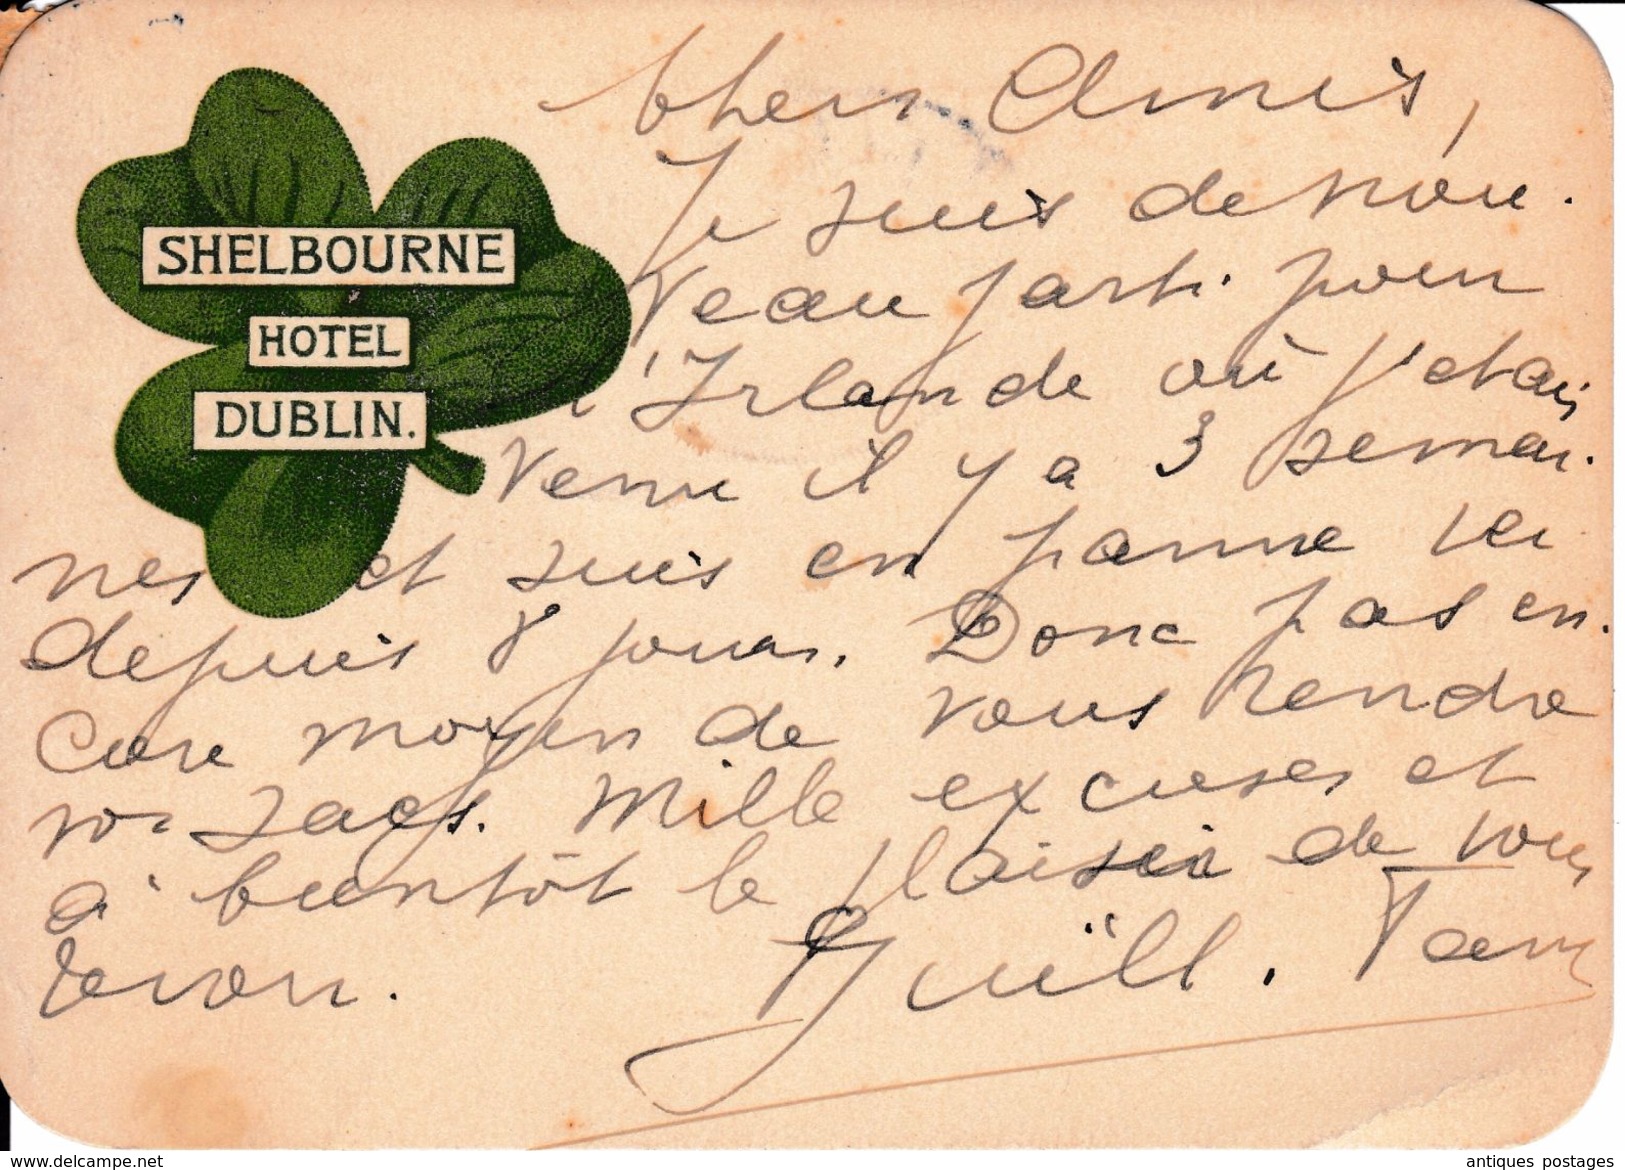 SHELBOURNE
HOTEL
DUBLIN.
Chers Amis,
Je suis de nou-
veau parti pour
l'Irlande où j'etais
venu il y a 3 semai-
nes et suis en panne ici
depuis 8 jours. Donc pas en-
core moyen de vous rendre
vos sacs. Mille excuses et
à bientôt le plaisir de vous
revoir.
www.delcampe.net
antiques postages